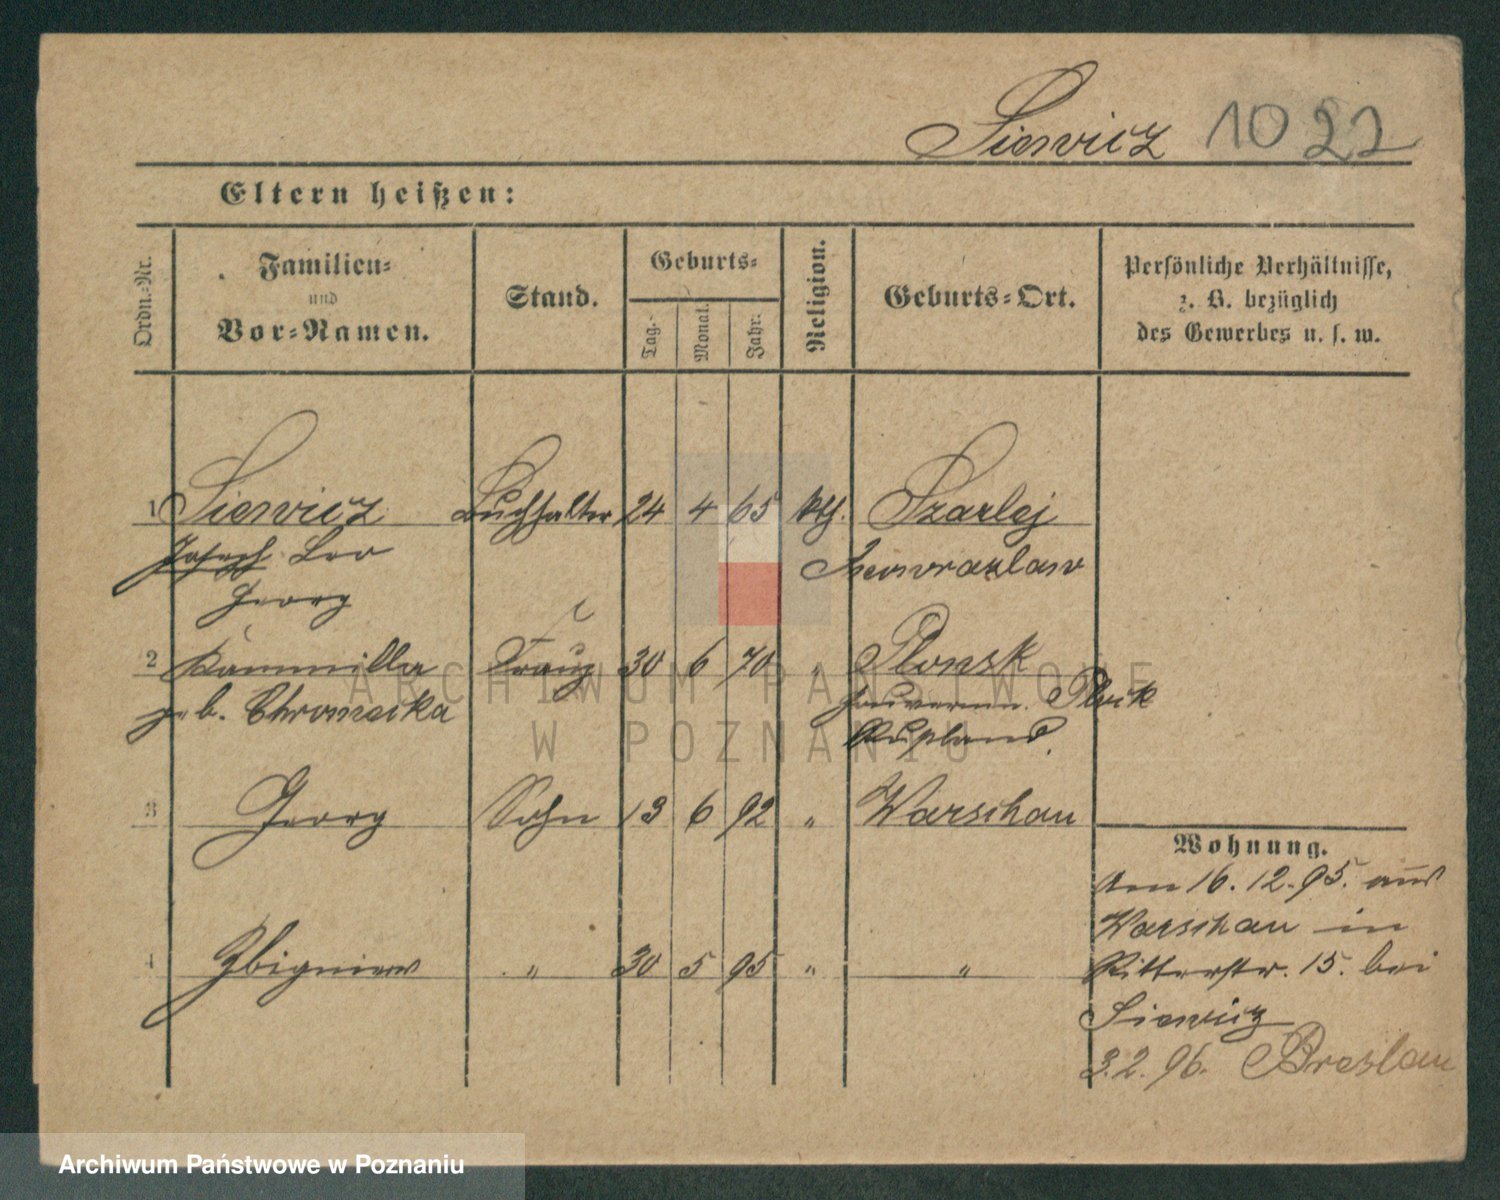 Siewicz 1022
Eltern heißen:
Ordn.-Nr.
Familien-
und
Vor-Namen.
Stand.
Geburts-
Tag.
Monat.
Jahr.
Religion.
Geburts-Ort.
Persönliche Verhältnisse,
z. B. bezüglich
des Gewerbes u. s. w.
1 Siewicz Buchhalter 24 4 65 kth. Szarlej
Joseph Leo Inowrazlaw
Georg
2 Kammilla Frau 30 6 70 " Plonsk
geb. Chromecka Gouvernm. Plock
Rußland.
3 Georg Sohn 13 6 92 " Warschau
4 Zbigniew " 30 5 95 " "
Wohnung.
Am 16.12.95. aus
Warschau in
Ritterstr. 15. bei
Siewicz
3.2.96. Breslau
ARCHIWUM PAŃSTWOWE
W POZNANIU
Archiwum Państwowe w Poznaniu